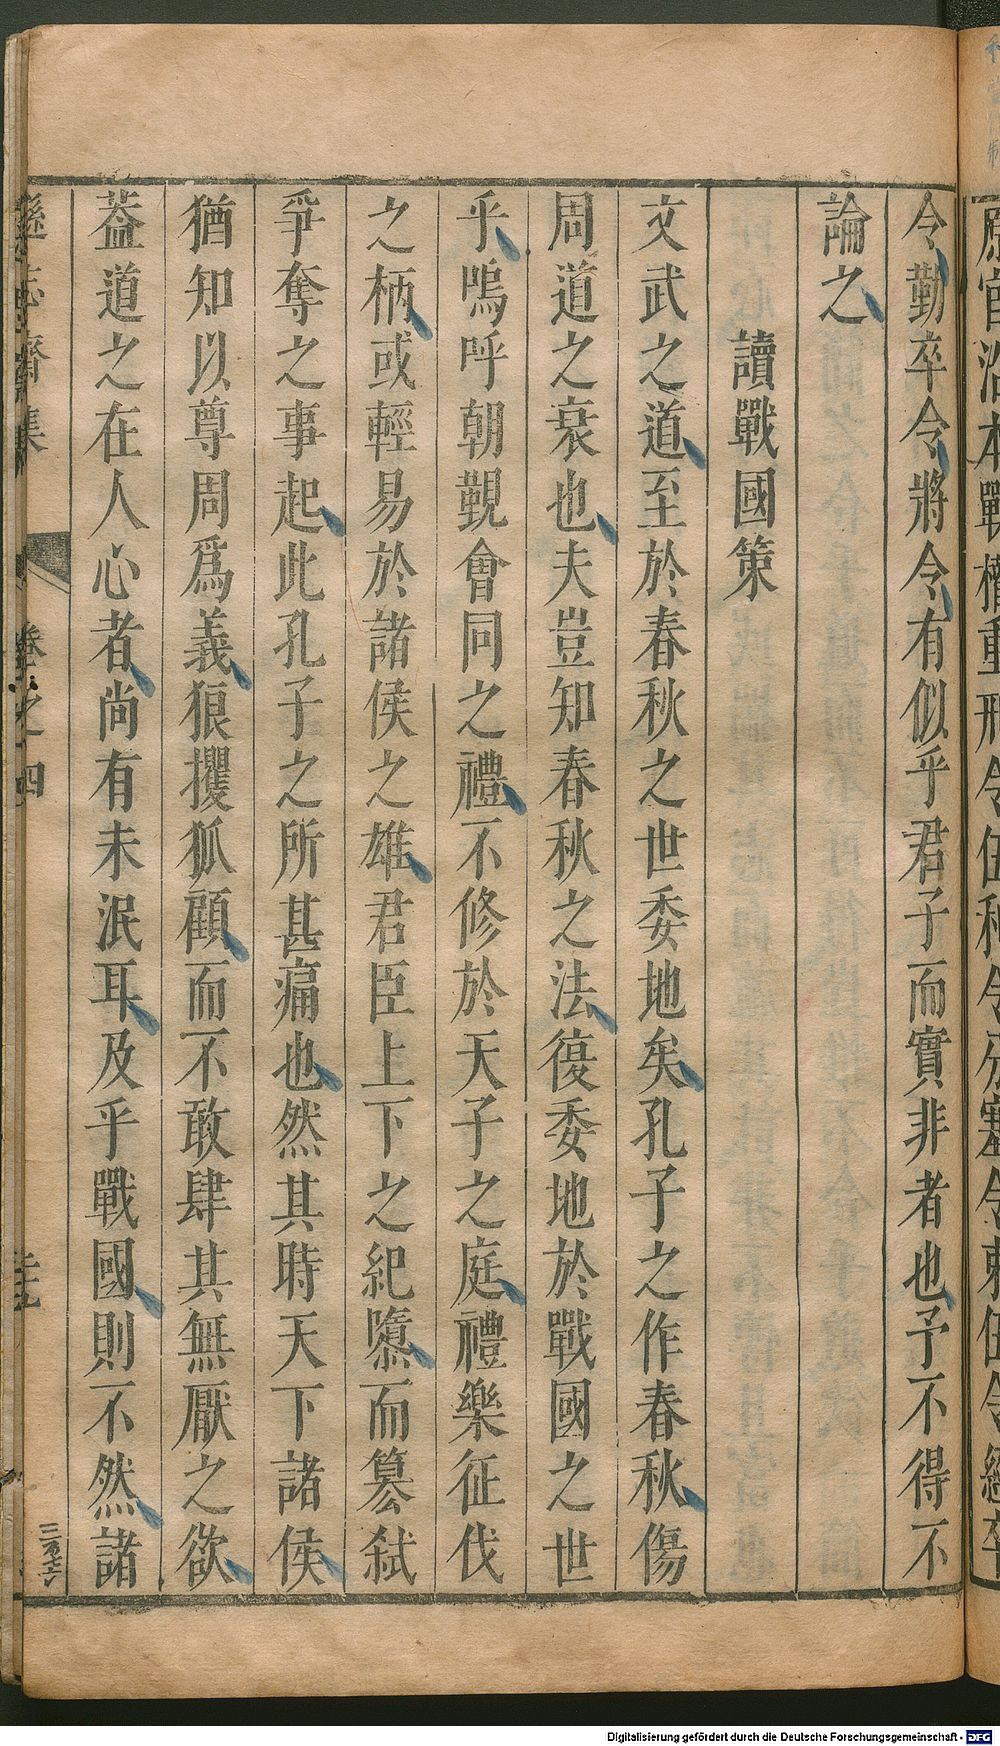 令勤卒令將令有似乎君子而實非者也予不得不
論之
讀戰國策
文武之道至於春秋之世委地矣孔子之作春秋傷
周道之衰也夫豈知春秋之法復委地於戰國之世
乎嗚呼朝覲會同之禮不修於天子之庭禮樂征伐
之柄或輕易於諸侯之雄君臣上下之紀隳而篡弑
爭奪之事起此孔子之所甚痛也然其時天下諸侯
猶知以尊周爲義狼攫狐顧而不敢肆其無厭之欲
葢道之在人心者尚有未泯耳及乎戰國則不然諸
遜志齋集 卷之四
Digitalisierung gefördert durch die Deutsche Forschungsgemeinschaft - DFG